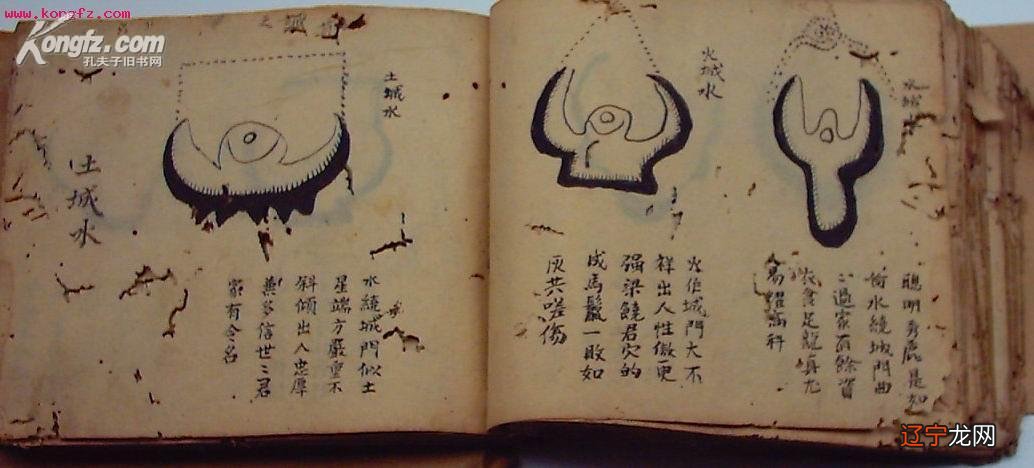 www.kongfz.com
Kongfz.com
孔夫子旧书网
水城
聰明秀麗是如
何水繞城門曲
〻過家有餘資
衣食足龍真尤
易擢高科
火城水
火作城門大不
祥出人性傲更
强梁饒君穴的
成馬鬣一敗如
灰共嗟傷
土城水
水繞城門似土
星端方嚴重不
斜傾出人忠厚
兼多信世〻君
家有令名
土城水
辽宁龙网